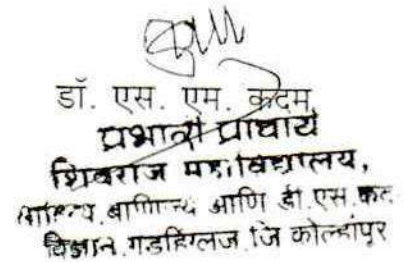 डॉ. एस. एम. कदम
प्रभारी प्राचार्य
शिवराज महाविद्यालय,
वाणिज्य आणि डी.एस. कदम
विज्ञान गडहिंग्लज जि कोल्हापूर